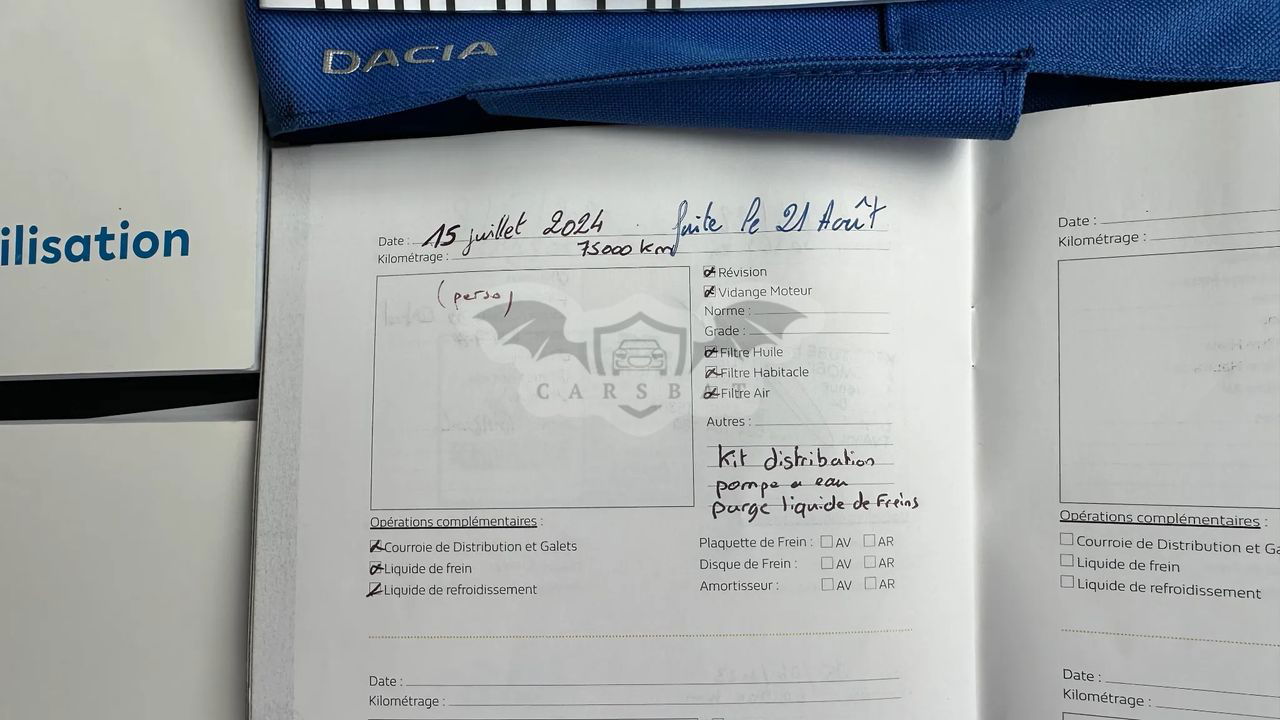 DACIA
ilisation
Date : 15 juillet 2024 faite le 21 Août
Kilométrage : 75000 km
(perso)
Révision
Vidange Moteur
Norme :
Grade :
Filtre Huile
Filtre Habitacle
Filtre Air
Autres :
Kit distribation
pompe a eau
purge liquide de Freins
CARSBAT
Opérations complémentaires :
Courroie de Distribution et Galets
Liquide de frein
Liquide de refroidissement
Plaquette de Frein : AV AR
Disque de Frein : AV AR
Amortisseur : AV AR
Date :
Kilométrage :
Date :
Kilométrage :
Opérations complémentaires :
Courroie de Distribution et Ga
Liquide de frein
Liquide de refroidissement
Date :
Kilométrage :